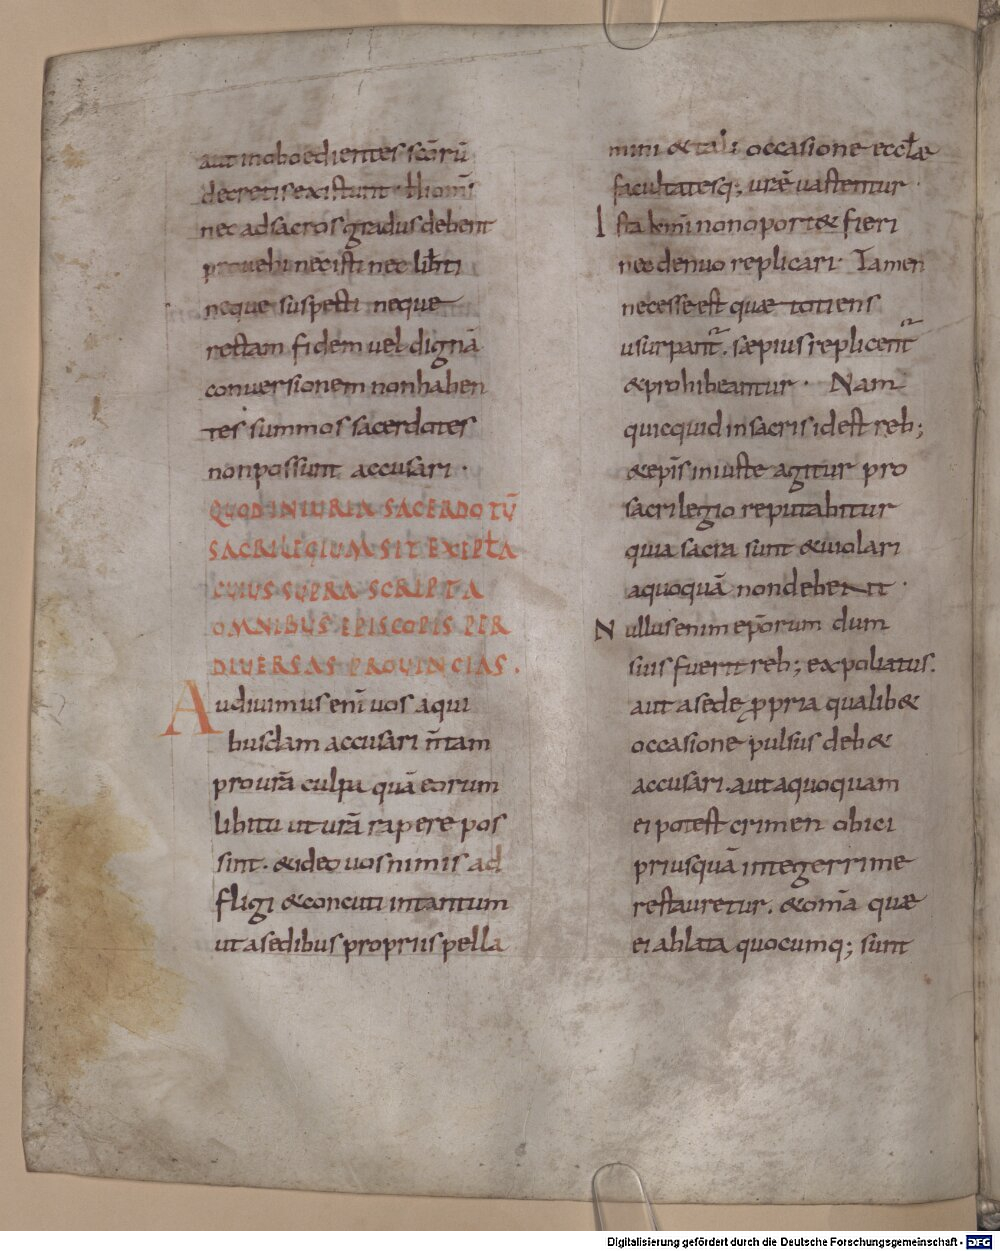 aut inoboedientes scōrū
decretis existunt · hi omīs
nec ad sacros gradus debent
prouehi nec isti nec liƀti
neque suspecti neque
rectam fidem uel dignā
conuersionem non haben
tes summos sacerdotes
non possunt accusari ·
QUOD INIURIA SACERDOTŪ
SACRILEGIUM SIT EX EPLA
CUIUS SUPRA SCRIPTA
OMNIBUS EPISCOPIS PER
DIUERSAS PROUINCIAS .
Audiuimus enī uos a qui
busdam accusari n̄ tam
pro urā culpa quā eorum
libitu ut urā rapere pos
sint . & ideo uos nimis ad
fligi & concuti in tantum
ut a sedibus propriis pella
mini & tali occasione eccłæ
facultatesq; uræ uastentur ·
Ista enī non oport& fieri
nec denuo replicari · Tamen
necesse est quæ totiens
usurpant̄ . sæpius replicent̄
& prohibeantur · Nam
quicquid in sacris id est reb;
& ep̄is iniuste agitur pro
sacrilegio reputabitur
quia sacra sunt & uiolari
a quoquā non debent ·
Nullus enim ep̄orum dum
suis fuerit reb; expoliatus .
aut a sede ꝓpria qualib&
occasione pulsus deb&
accusari . aut a quoquam
ei potest crimen obici
priusquā integerrime
restauretur . & om̄ia quæ
ei ablata quocumq; sunt
Digitalisierung gefördert durch die Deutsche Forschungsgemeinschaft - DFG